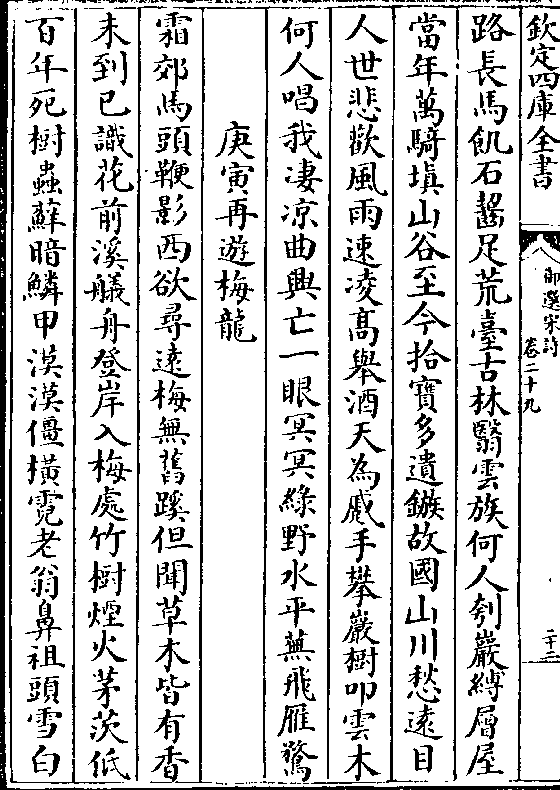 欽定四庫全書
御選宋詩
卷二十九
二十二
路長馬飢石齧足荒臺古林翳雲族何人刳巖縛層屋
當年萬騎塡山谷至今拾寶多遺鏃故國山川愁遠目
人世悲歡風雨速凌髙舉酒天為戚手攀巖樹叩雲木
何人唱我凄凉曲興亡一眼冥冥綠野水平蕪飛雁驚
庚寅再遊梅龍
霜郊馬頭鞭影西欲尋遠梅無舊蹊但聞草木皆有香
未到已識花前溪艤舟登岸入梅處竹樹煙火茅茨低
百年死樹蟲蘚暗鱗甲漠漠僵橫霓老翁鼻祖頭雪白